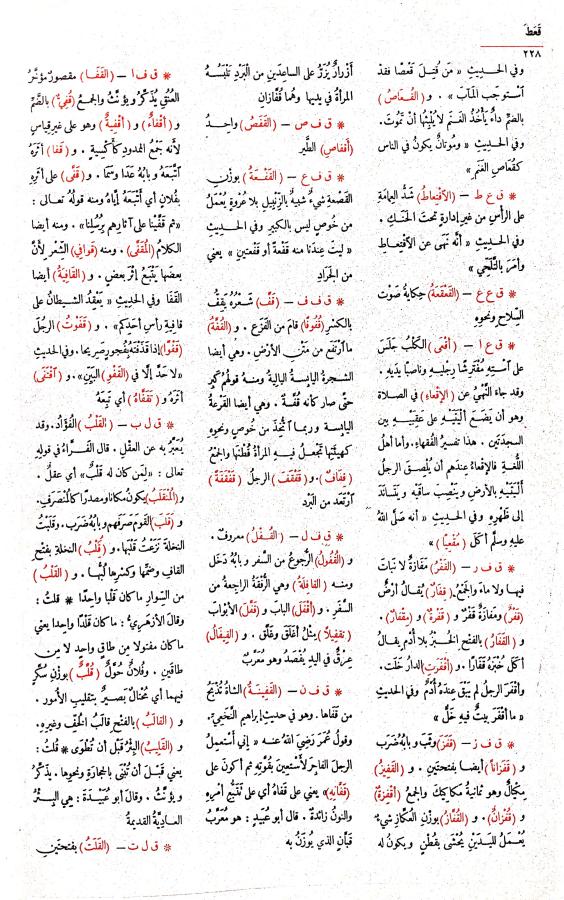 قَعَطَ
٢٢٨
وفي الحديثِ « مَن قُتِلَ قَعْصًا فقد
اسْتوجَب المآبَ » . و (القُعاصُ)
بالضمِّ داءٌ يَأْخُذُ الغَنَم لا يُلْبِثُها أن تَموتَ.
وفي الحديثِ « ومُوتانٌ يكونُ في الناسِ
كقُعاصِ الغَنَمِ »
* ق ع ط – (الاقْتِعاطُ) شَدُّ العِمامَةِ
على الرأسِ من غيرِ إدارةٍ تحتَ الحَنَكِ .
وفي الحديثِ « أنَّه نَهَى عن الاقْتِعاطِ
وأَمَرَ بالتَّلَحِّي »
* ق ع ع – (القَعْقَعَةُ) حِكايةُ صَوْتِ
السِّلاحِ ونحوِهِ
* ق ع ا – (أقْعَى) الكَلْبُ جَلَسَ
على اسْتِهِ مُفْتَرِشًا رِجْليهِ وناصبًا يدَيهِ.
وقد جاءَ النَّهيُ عن (الإقْعاءِ) في الصلاةِ
وهو أن يَضَعَ ألْيَتَيْهِ على عَقِبَيْهِ بين
السجدَتَين . هذا تفسيرُ الفقهاءِ. وأما أهلُ
اللُّغةِ فالإقْعاءُ عندَهم أن يُلْصِقَ الرجلُ
ألْيَتَيْهِ بالأرضِ ويَنْصِبَ ساقَيه ويتَسانَدَ
إلى ظَهْرِهِ وفي الحديثِ « أنه صلَّى اللهُ
عليه وسلَّم أكَلَ (مُقْعِيا) »
* ق ف ر – (القَفْرُ) مَفازةٌ لا نَباتَ
فيها ولا ماءَ والجَمْعُ (قِفارٌ) يُقالُ أرْضٌ
(قَفْرٌ) ومَفازةٌ قَفْرٌ و (قَفْرةٌ) و (مِقْفارٌ) .
و (القَفارُ) بالفتحِ الخُبزُ بلا أُدْمٍ يقالُ
أكَلَ خُبْزَه قَفارًا . و (أقْفَرَتِ) الدارُ خَلَت .
وأقْفَرَ الرجلُ لم يَبقَ عِندَهُ أُدْمٌ وفي الحديثِ
« ما أقْفَرَ بيتٌ فيه خَلٌّ »
* ق ف ز – (قَفَزَ) وثَبَ وبابُهُ ضَرَبَ
و (قَفَزانًا) أيضا بفتحتينِ . و (القَفِيزُ)
مِكْيالٌ وهو ثمانيةُ مَكاكيكَ والجمعُ (أقْفِزةٌ)
و (قُفْزانٌ) . و (القُفَّازُ) بوزنِ العُكَّازِ شيءٌ
يُعْمَلُ لليدَينِ يُحْشَى بقُطنٍ ويكونُ له
أزْرارٌ يُزَرُّ على الساعِدَينِ من البَرْدِ تَلْبَسُهُ
المرأةُ في يديها وهُما قُفَّازانِ
* ق ف ص – (القَفَصُ) واحِدُ
(أقْفاصِ) الطَّيرِ
* ق ف ع – (القَفْعَةُ) بوزنِ
القَصْعةِ شيءٌ شبيهٌ بالزَّنْبِيلِ بلا عُرْوةٍ يُعْمَلُ
من خُوصٍ ليس بالكبيرِ وفي الحديثِ
« ليتَ عِندَنا منه قَفْعةً أو قَفْعتَينِ » يعني
من الجَرادِ
* ق ف ف – (قَفَّ) شَعْرُه يَقِفُّ
بالكسرِ (قُفوفًا) قامَ من الفَزَعِ . و (القُفَّةُ)
ما ارْتَفعَ من مَتْنِ الأرضِ . وهي أيضا
الشجرةُ اليابسةُ الباليةُ ومنه قولُهم كَبِرَ
حتَّى صارَ كأنه قُفَّةٌ . وهي أيضا القَرْعةُ
اليابسةُ وربما اتُّخِذَ من خُوصٍ ونحوِهِ
كهيئتِها تَجْعلُ فيه المرأةُ قُطْنَها والجمعُ
(قِفافٌ) . و(قَفْقَفَ) الرجلُ (قَفْقَفَةً)
ارْتعَد من البَرْدِ
* ق ف ل – (القُفْلُ) معروفٌ .
و (القُفُولُ) الرُّجوعُ من السَّفَرِ وبابُهُ دَخَلَ
ومنه (القافِلةُ) وهي الرُّفْقةُ الراجِعةُ من
السَّفَرِ . و (أقْفَلَ) البابَ و (قَفَّلَ) الأبوابَ
(تقفِيلًا) مِثْلُ أغْلَقَ وغَلَّقَ . و (القِيفالُ)
عِرْقٌ في اليَدِ يُفْصَدُ وهو مُعرَّبٌ
* ق ف ن – (القَفِينَةُ) الشاةُ تُذْبَحُ
من قَفاها. وهو في حديثِ إبراهيمَ النَّخَعِيِّ.
وقولُ عُمَرَ رَضِيَ اللهُ عنه « إني أستعمِلُ
الرجلَ الفاجِرَ لأَسْتَعِينَ بقُوَّتِه ثم أكونُ على
(قَفَّانِه) » يعني على قَفاهُ أي على تَتَبُّعِ أمرِهِ
والنونُ زائدةٌ . قال أبو عُبيدٍ : هو مُعرَّبُ
قَبَّانٍ الذي يُوزَنُ به
* ق ف ا – (القَفَا) مقصورٌ مؤخَّرُ
العُنُقِ يُذَكَّرُ ويؤنَّثُ والجمعُ (قُفِيٌّ) بالضَّمِّ
و (أقْفاءٌ) و (أقْفِيةٌ) وهو على غيرِ قياسٍ
لأنه جَمْعُ الممدودِ كأكْسِيةٍ . و (قَفا) أثرَهُ
اتَّبَعهُ وبابُهُ عَدا وسَما . و (قَفَّى) على أثرِهِ
بفُلانٍ أي أتْبَعَهُ إيَّاهُ ومنه قولُهُ تعالى :
«ثم قَفَّيْنا على آثارِهم برُسُلِنا» . ومنه أيضا
الكلامُ (المُقَفَّى) . ومنه (قَوافِي) الشِّعْرِ لأنَّ
بعضَها يَتْبَعُ إثْرَ بعضٍ . و (القافِيةُ) أيضا
القَفا وفي الحديثِ « يَعْقِدُ الشيطانُ على
قافِيةِ رأسِ أحدِكم » . و (قَفَوْتُ) الرجُلَ
(قَفْوًا) إذا قَذَفْتَهُ بفُجورٍ صَريحا. وفي الحديثِ
« لا حَدَّ إلَّا في (القَفْوِ) البَيِّنِ ». و (اقْتَفَى)
أثرَهُ و (تَقَفَّاهُ) أي تَبِعَهُ
* ق ل ب – (القَلْبُ) الفُؤادُ. وقد
يُعبَّرُ به عن العقلِ . قال الفَرَّاءُ في قولِهِ
تعالى : « لِمَن كان له قَلْبٌ » أي عقلٌ .
و(المُنقَلَبُ) يكونُ مكانا ومصدرًا كالمُنْصَرَفِ .
و (قَلَبَ) القومَ صَرَفَهم وبابُهُ ضَرَبَ . وقَلَبْتُ
النخلةَ نَزَعْتُ قَلْبَها. و (قُلْبُ) النخلةِ بفتحِ
القافِ وضمِّها وكسرِها لُبُّها . و (القُلْبُ)
من السِّوارِ ما كان قَلْبًا واحدًا * قلتُ :
وقالَ الأزْهَرِيُّ : ما كان قَلْدًا واحدا يعني
ما كان مفتولا من طاقٍ واحدٍ لا من
طاقَينِ . وفُلانٌ حُوَّلٌ (قُلَّبٌ) بوَزْنِ سُكَّرٍ
فيهما أي مُحْتالٌ بصيرٌ بتقليبِ الأُمورِ .
و (القالَبُ) بالفتحِ قالَبُ الخُفِّ وغيرِهِ.
و (القَلِيبُ) البئرُ قَبْلَ أن تُطْوَى * قُلتُ :
يعني قبلَ أن تُبْنَى بالحِجارةِ ونحوِها . يذكَّرُ
ويؤنَّثُ . وقال أبو عُبَيدةَ : هي البئرُ
العادِيَّةُ القديمةُ
* ق ل ت – (القَلَتُ) بفتحتينِ